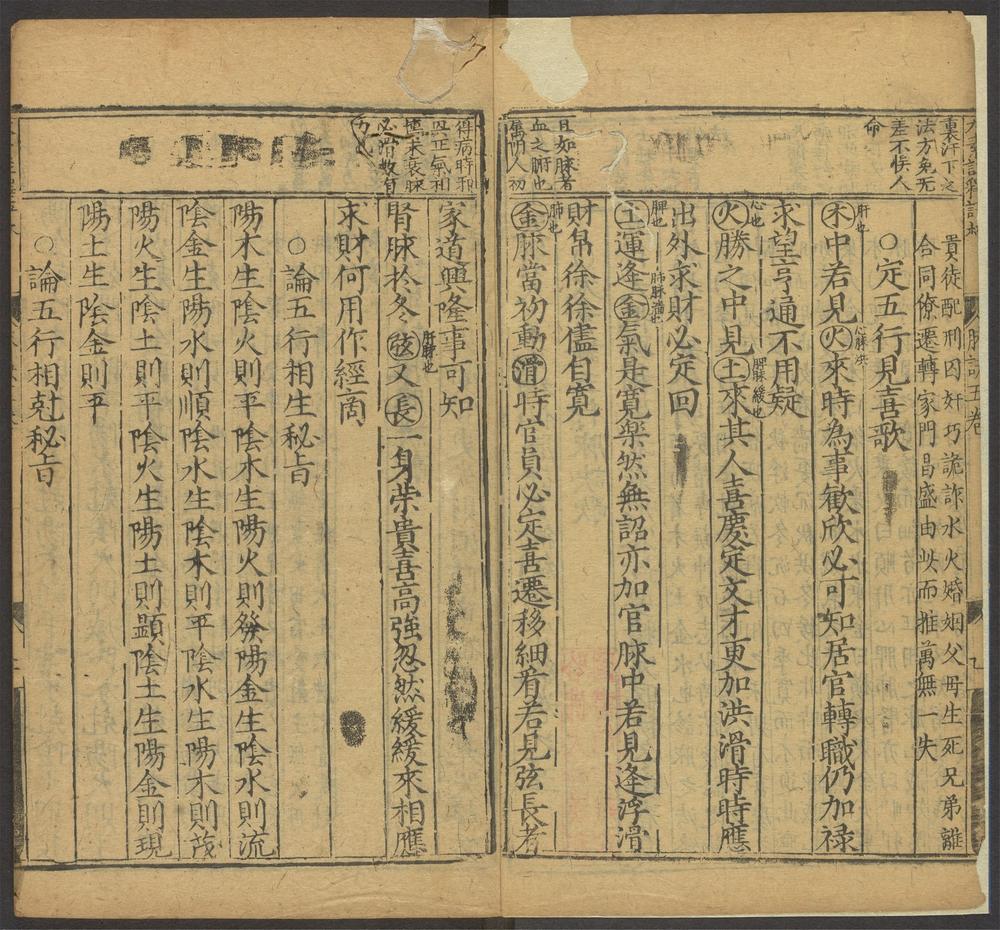 裏汗下之
法方免无
差不悮人
命
貴徒配刑囚奸巧詭詐水火婚姻父母生死兄弟離
合同僚遷轉家門昌盛由此而推萬無一失
○定五行見喜歌
肝也
心脉洪
木中若見火來時為事歡欣必可知居官轉職仍加禄
求望亨通不用疑
心也
脾脉緩也
火勝之中見土來其人喜慶定文才更加洪滑時時應
出外求財必定回
脾也
肺脉濇也
土運逢金氣是寬樂然無詔亦加官脉中若見逢浮滑
財帛徐徐儘自寬
肺也
金脉當初動滑時官員必定喜遷移細看若見弦長者
且如脉者
血之腑也
萬明人初
得病時和
與正氣相
搏未衰脉
必滑數有
力也
家道興隆事可知
肝脉也
腎脉於冬弦又長一身荣貴喜高強忽然緩緩來相應
求財何用作經商
○論五行相生秘旨
陽木生陰火則平陰木生陽火則發陽金生陰水則流
陰金生陽水則順陰水生陰木則平陰水生陽木則茂
陽火生陰土則平陰火生陽土則顕陰土生陽金則現
陽土生陰金則平
○論五行相尅秘旨
脉訣五卷